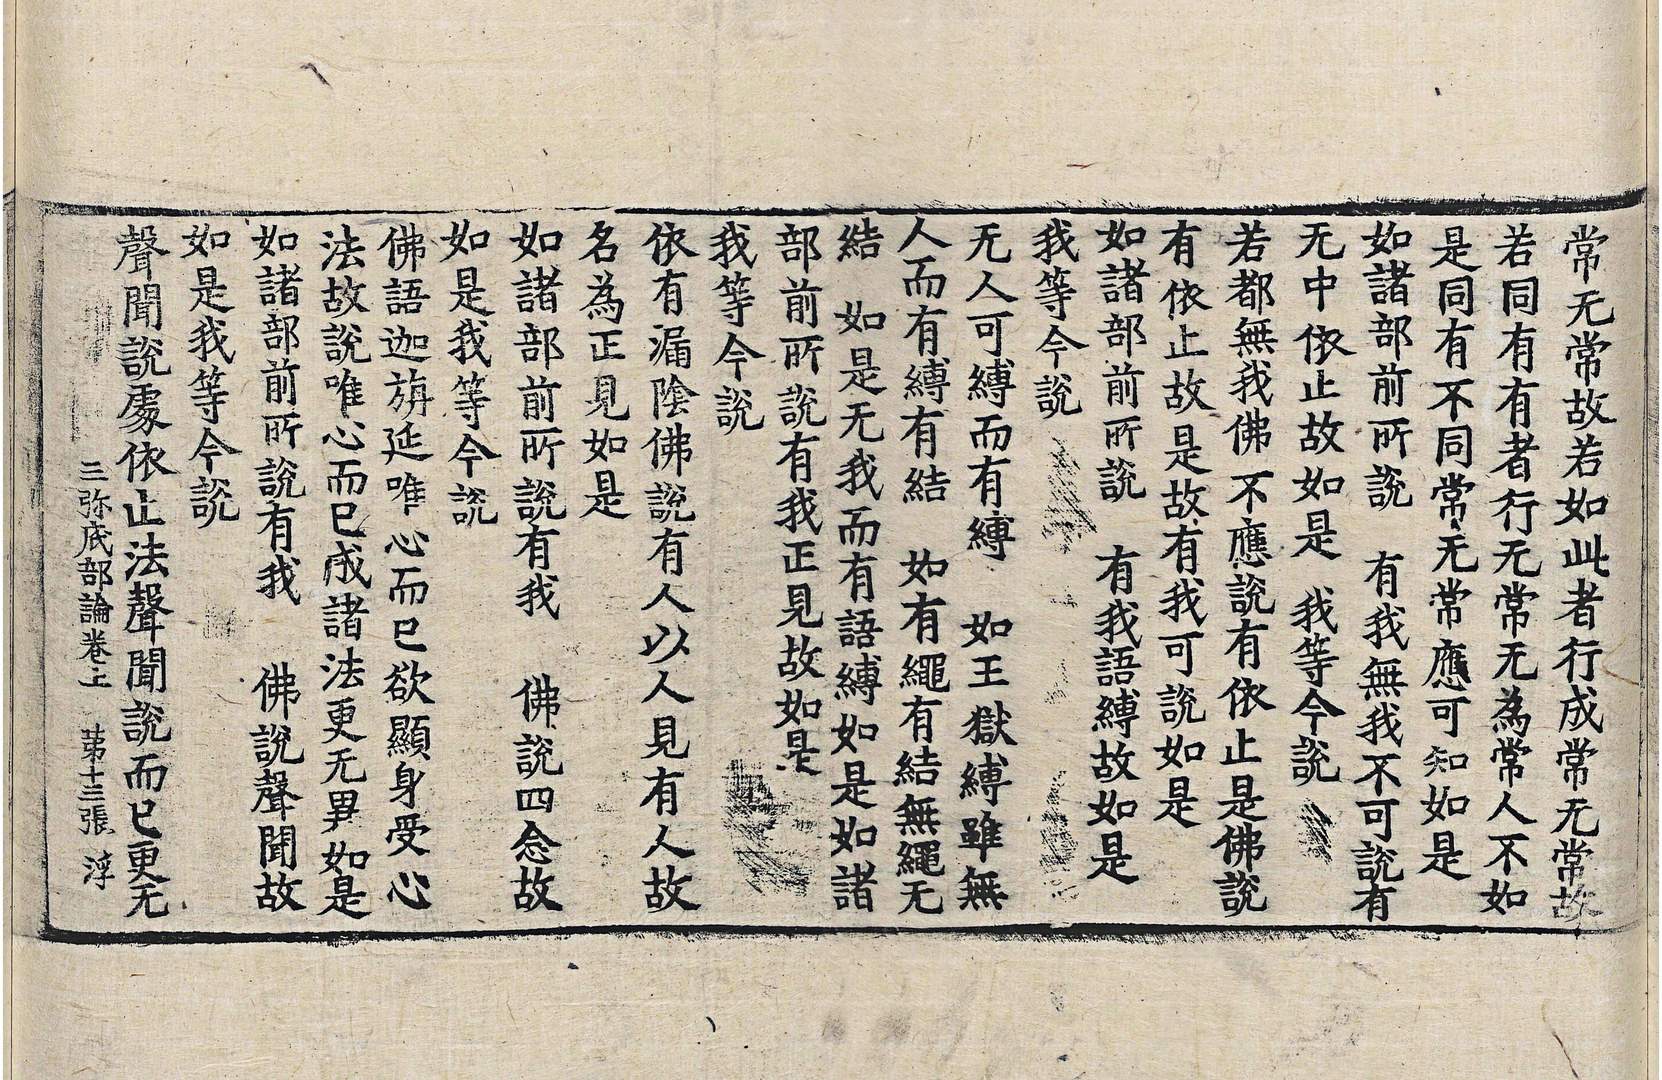 常无常故若如此者行成常无常故
若同有有者行无常无為常人不如
是同有不同常无常應可知如是
如諸部前所說　有我無我不可說有
无中依止故如是　我等今說
若都無我佛不應說有依止是佛說
有依止故是故有我可說如是
如諸部前所說　有我語縛故如是
我等今說
无人可縛而有縛　如王獄縛雖無
人而有縛有結　如有繩有結無繩无
結　如是无我而有語縛如是如諸
部前所說有我正見故如是
我等今說
依有漏陰佛說有人以人見有人故
名為正見如是
如諸部前所說有我　佛說四念故
如是我等今說
佛語迦旃延唯心而已欲顯身受心
法故說唯心而已成諸法更无異如是
如諸部前所說有我　佛說聲聞故
如是我等今說
聲聞說處依止法聲聞說而已更无
三弥底部論卷上　苐十三張　浮